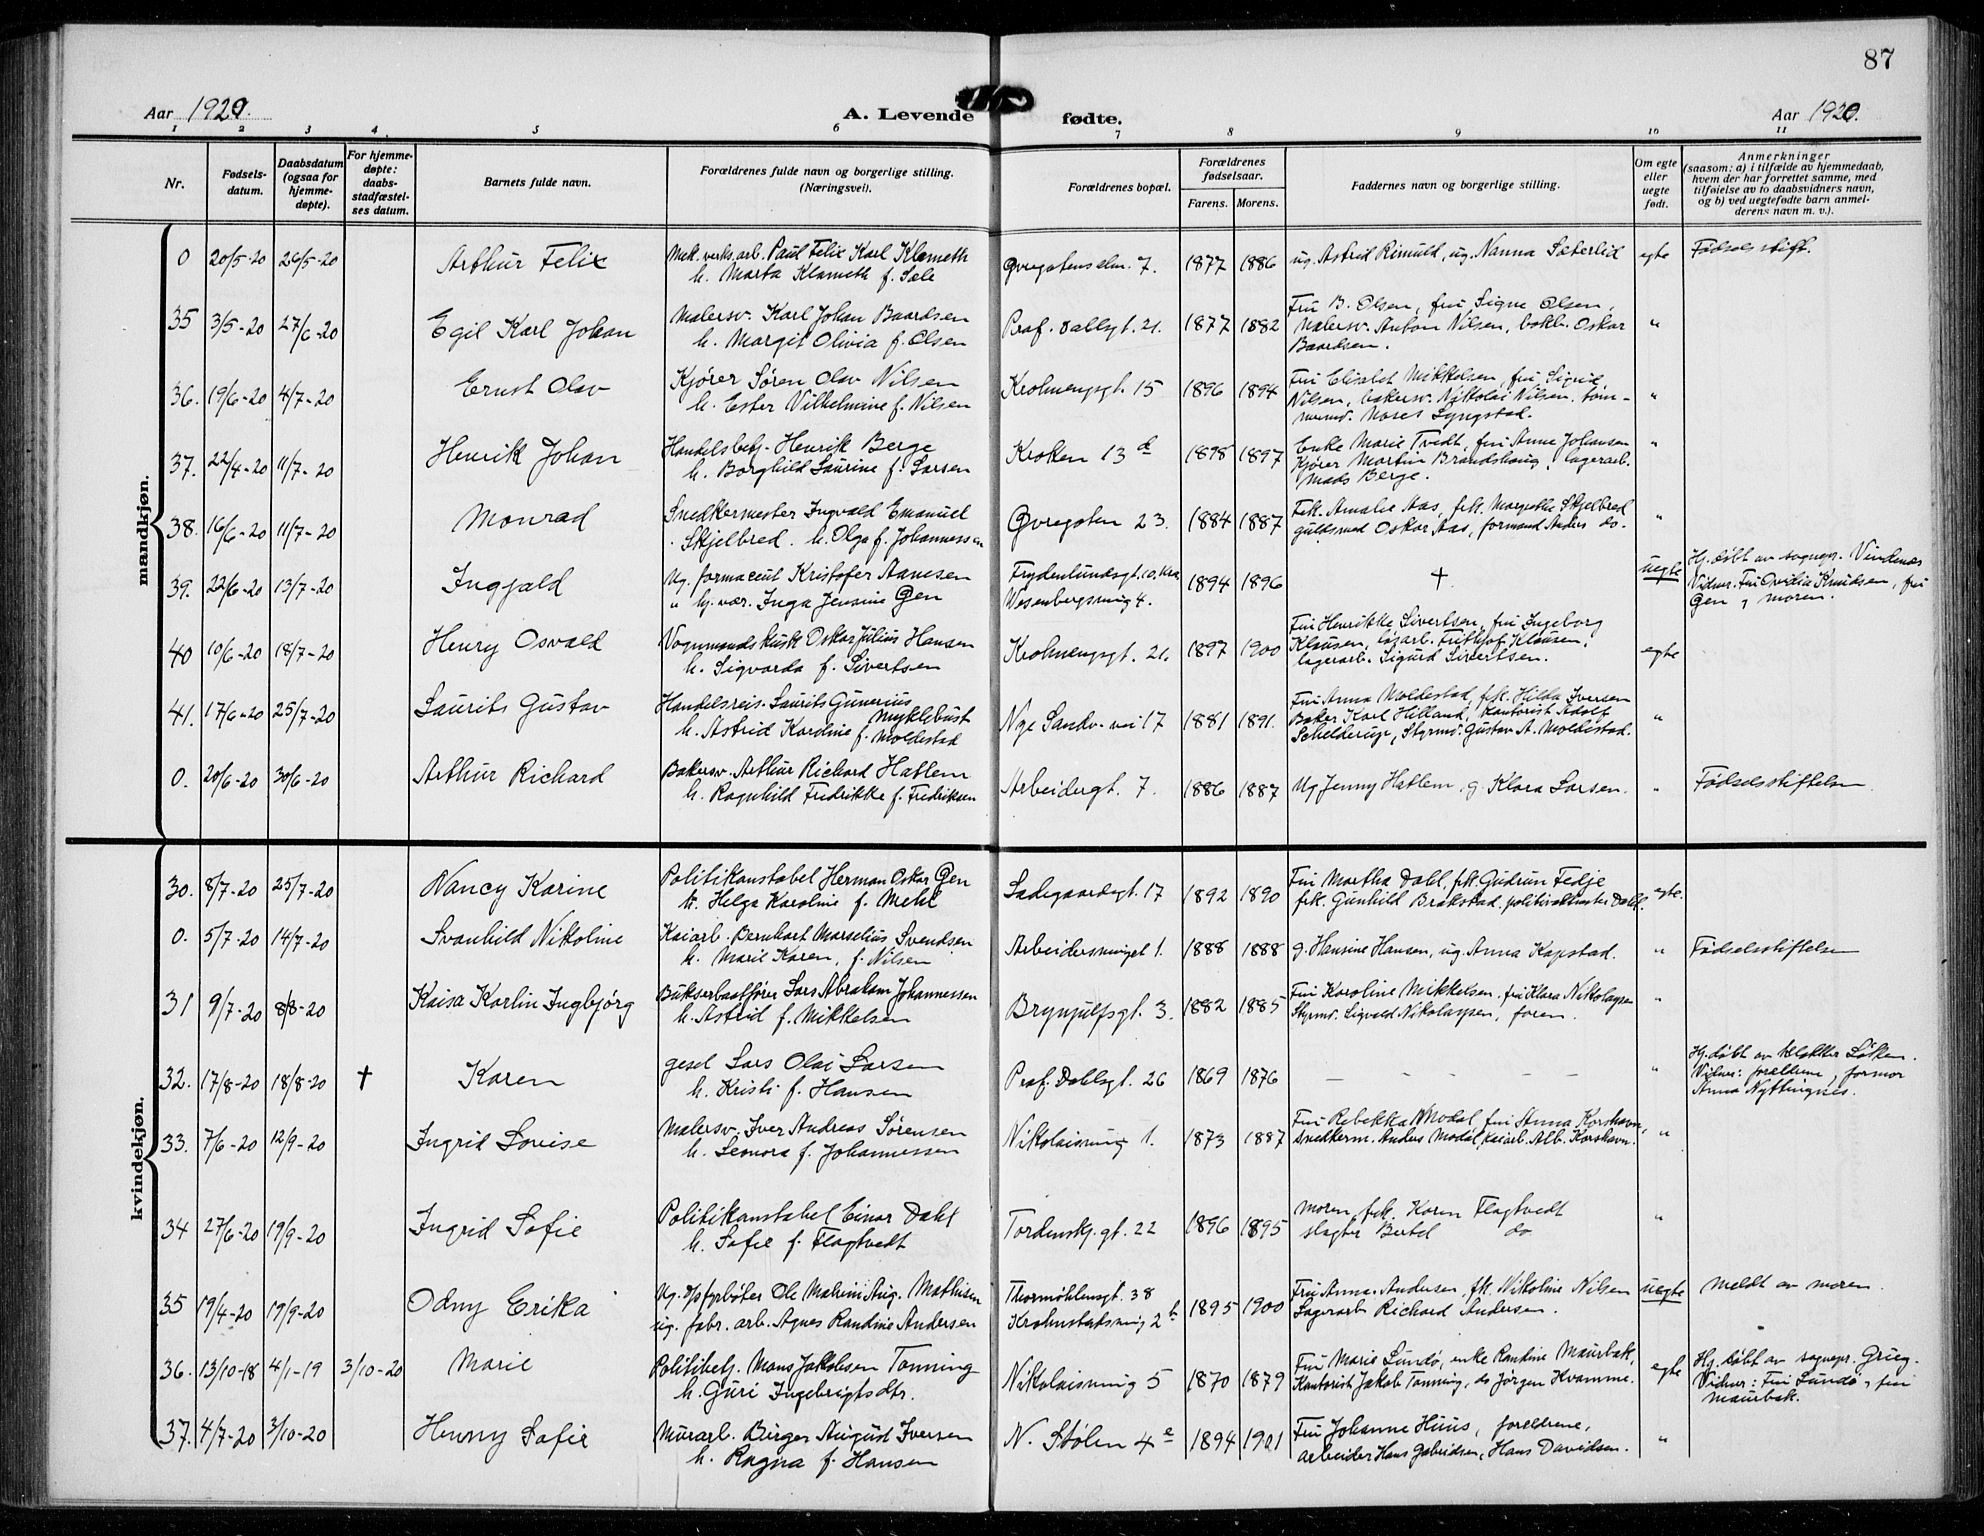 87
Aar 1920.
A. Levende fødte.
Aar 1920.
1 2 3 4. 5 6 7 8 9 10 11
Nr.
Fødselsdatum.
Daabsdatum (ogsaa for hjemmedøpte).
For hjemmedøpte: daabsstadfæstelses datum.
Barnets fulde navn.
Forældrenes fulde navn og borgerlige stilling. (Næringsvei).
Forældrenes bopæl.
Forældrenes fødselsaar.
Farens. Morens.
Faddernes navn og borgerlige stilling.
Om egte eller uegte født.
Anmerkninger
(saasom: a) i tilfælde av hjemmedaab,
hvem der har forrettet samme, med
tilføielse av to daabsvidners navn,
og b) ved uegtefødte barn anmelderens navn m. v.).
mandkjøn.
0 20/5-20 26/5-20 Arthur Felix
Mek. verks.arb. Paul Felix Karl Klameth
h. Marta Klameth f. Sale
Øvregatens alm. 7. 1877 1886
ug. Astrid Rimuld, ug. Nanna Sæterlid egte Fødselsstift.
35 3/5-20 27/6-20 Egil Karl Johan
Malersv. Karl Johan Baardsen
h. Margit Olivia f. Olsen
Prof. Dallsgt. 21. 1877 1882
Fru B. Olsen, fru Signe Olsen,
Malersv. Anton Nilsen, bokb. Oskar
Baardsen. "
36. 19/6-20 4/7-20 Ernst Olav
Kjører Søren Olav Nilsen
h. Ester Vilhelmine f. Nilsen
Krohnengsgt. 15 1896 1894
Fru Elisabet Mikkelsen, fru Sigrid
Nilsen, bakersv. Nikolai Nilsen, tømmermd. Moses Lyngstad. "
37. 22/4-20 11/7-20 Henrik Johan
Handelsbetj. Henrik Berge
h. Borghild Laurine f. Larsen
Kroken 13 d 1898 1897
Enke Marie Tvedt, fru Anne Johansen
Kjører Martin Brandshaug, lagerarb.
Mads Berge. "
38. 16/6-20 11/7-20 Monrad
Snedkermester Ingvald Emanuel
Skjelbred. h. Olga f. Johannessen
Øvregaten 23. 1884 1887
Frk. Amalie Aas, frk. Margrethe Skjelbred
guldsmed Oskar Aas, formand Anders do. "
39. 22/6-20 13/7-20 Ingjald
Ug. farmaceut Kristofer Aanesen
" hj. vær. Inga Jensine Gen
Frydenlundsgt. 10. Kra.
Wesenbergsmug 4. 1894 1896 † uegte
Hj. døbt av sognepr. Vindenæs
Vidner: Fru Ovidia Knudsen, fru
Gen, moren.
40 10/6-20 18/7-20 Henry Osvald
Vognmandskusk Oskar Julius Hansen
h. Sigvarda f. Sivertsen
Krohnengsgt. 21. 1897 1900
Fru Henrikke Sivertsen, fru Ingeborg
Klausen, løsarb. Frithjof Klausen,
lagerarb. Sigurd Sivertsen. egte
41. 17/6-20 25/7-20 Laurits Gustav
Handelsreis. Laurits Gunerius
Myklebust
h. Astrid Kardine f. Moldestad
Nye Sandv. vei 17 1881 1891.
Fru Anna Moldestad, frk. Hilda Iversen
Baker Karl Hilland, Kontorist Adolf
Schelderup, Styrmd. Gustav A. Moldestad. "
0. 20/6-20 30/6-20 Arthur Richard
Bakersv. Arthur Richard Hatlem
h. Ragnhild Fredrikke f. Fredriksen
Arbeidergt. 7. 1886 1887
Ug Jenny Hatlem, g. Klara Larsen. " Fødselsstiftelsen
kvindekjøn.
30. 8/7-20 25/7-20 Nancy Karine
Politikonstabel Herman Oskar Gen
h. Helga Karoline f. Mehl
Ladegaardsgt. 17 1892 1890
Fru Martha Dahl, frk. Gudrun Fedje
frk. Gunhild Brakstad, Dahl. egte.
0. 5/7-20 14/7-20 Svanhild Nikoline
Kaiarb. Bernhart Marselius Svendsen
h. Marie Karen, f. Nilsen
Arbeidersmuget 1. 1888 1888
g. Hansine Hansen, ug. Anna Kapstad. " Fødselsstiftelsen
31 9/7-20 8/8-20 Kaisa Karlin Ingbjørg
Bukserbaatfører Lars Abraham Johannessen
h. Astrid f. Mikkelsen
Brynjulfsgt. 3. 1882 1885
Fru Karoline Mikkelsen, fru Klara Nikolaysen
Styrmd. Sigvald Nikolaysen, faren. "
32. 17/8-20 18/8-20 † Karen
gesel Lars Olai Larsen
h. Kristi f. Hansen
Prof. Dahlsgt. 26 1869 1876 – – – – – "
Hj. døbt av klokker Løken.
Vidner: forældrene, farmor
Anna Nyttingnes.
33. 7/6-20 12/9-20 Ingrid Lovise
Malersv. Iver Andreas Sørensen
h. Leonora f. Johannessen
Nikolaismug 1. 1873 1887
Fru Rebekka Modal, fru Anna Korshavn,
snedkerm. Anders Modal, kaiarb. Alb. Korshavn. "
34 27/6-20 19/9-20 Ingrid Sofie
Politikonstabel Einar Dahl
h. Sofie f. Flagtvedt
Tordenskj. gt. 22 1896 1895
Moren, frk. Karen Flagtvedt
slagter Bertel do. "
35 19/4-20 19/9-20 Odny Erika
Ug. fyrbøter Ole Aug. Mathisen
ug. fabr. arb. Agnes Randine Andersen
Thormøhlensgt. 38
Krohnstadsmug 2 b 1895 1900
Fru Anna Andersen, frk. Nikoline Nilsen
Lagerarb. Richard Andersen. uegte Meldt av moren.
36. 13/10-18 4/1-19 3/10-20 Marie
Politibetj. Mons Jakobsen Tonning
h. Guri Ingebrigtsdtr.
Nikolaismug 5 1870 1879
Fru Marie Lundø, enke Randine Maurbak,
Kontorist Jakob Tonning, do Jørgen Kvamme. egte
Hj. døbt av sognepr. Grieg.
Vidner: Fru Lundø, fru
Maurbak.
37. 4/7-20 3/10-20 Henny Sofie
Murarb. Birger August Iversen
h. Ragna f. Hansen
N. Stølen 4 e 1894 1901
Fru Johanne Huus, forældrene,
arbeider Hans Gabrielsen, Hans Davidsen. "